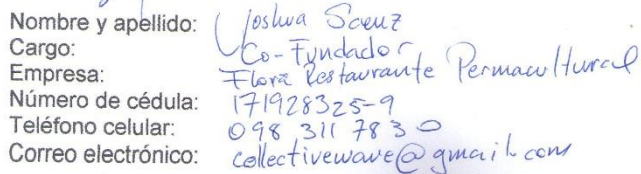 Nombre y apellido: Joshua Saenz
Cargo: Co-Fundador
Empresa: Flora Restaurante Permacultural
Número de cédula: 171928325-9
Teléfono celular: 098 311 7830
Correo electrónico: collectivewave@gmail.com